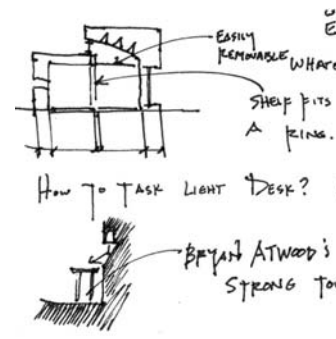 EASILY
REMOVABLE
WHATE
SHELF FITS
A RING.
HOW TO TASK LIGHT DESK?
BRYAN ATWOOD'S
STRONG TO